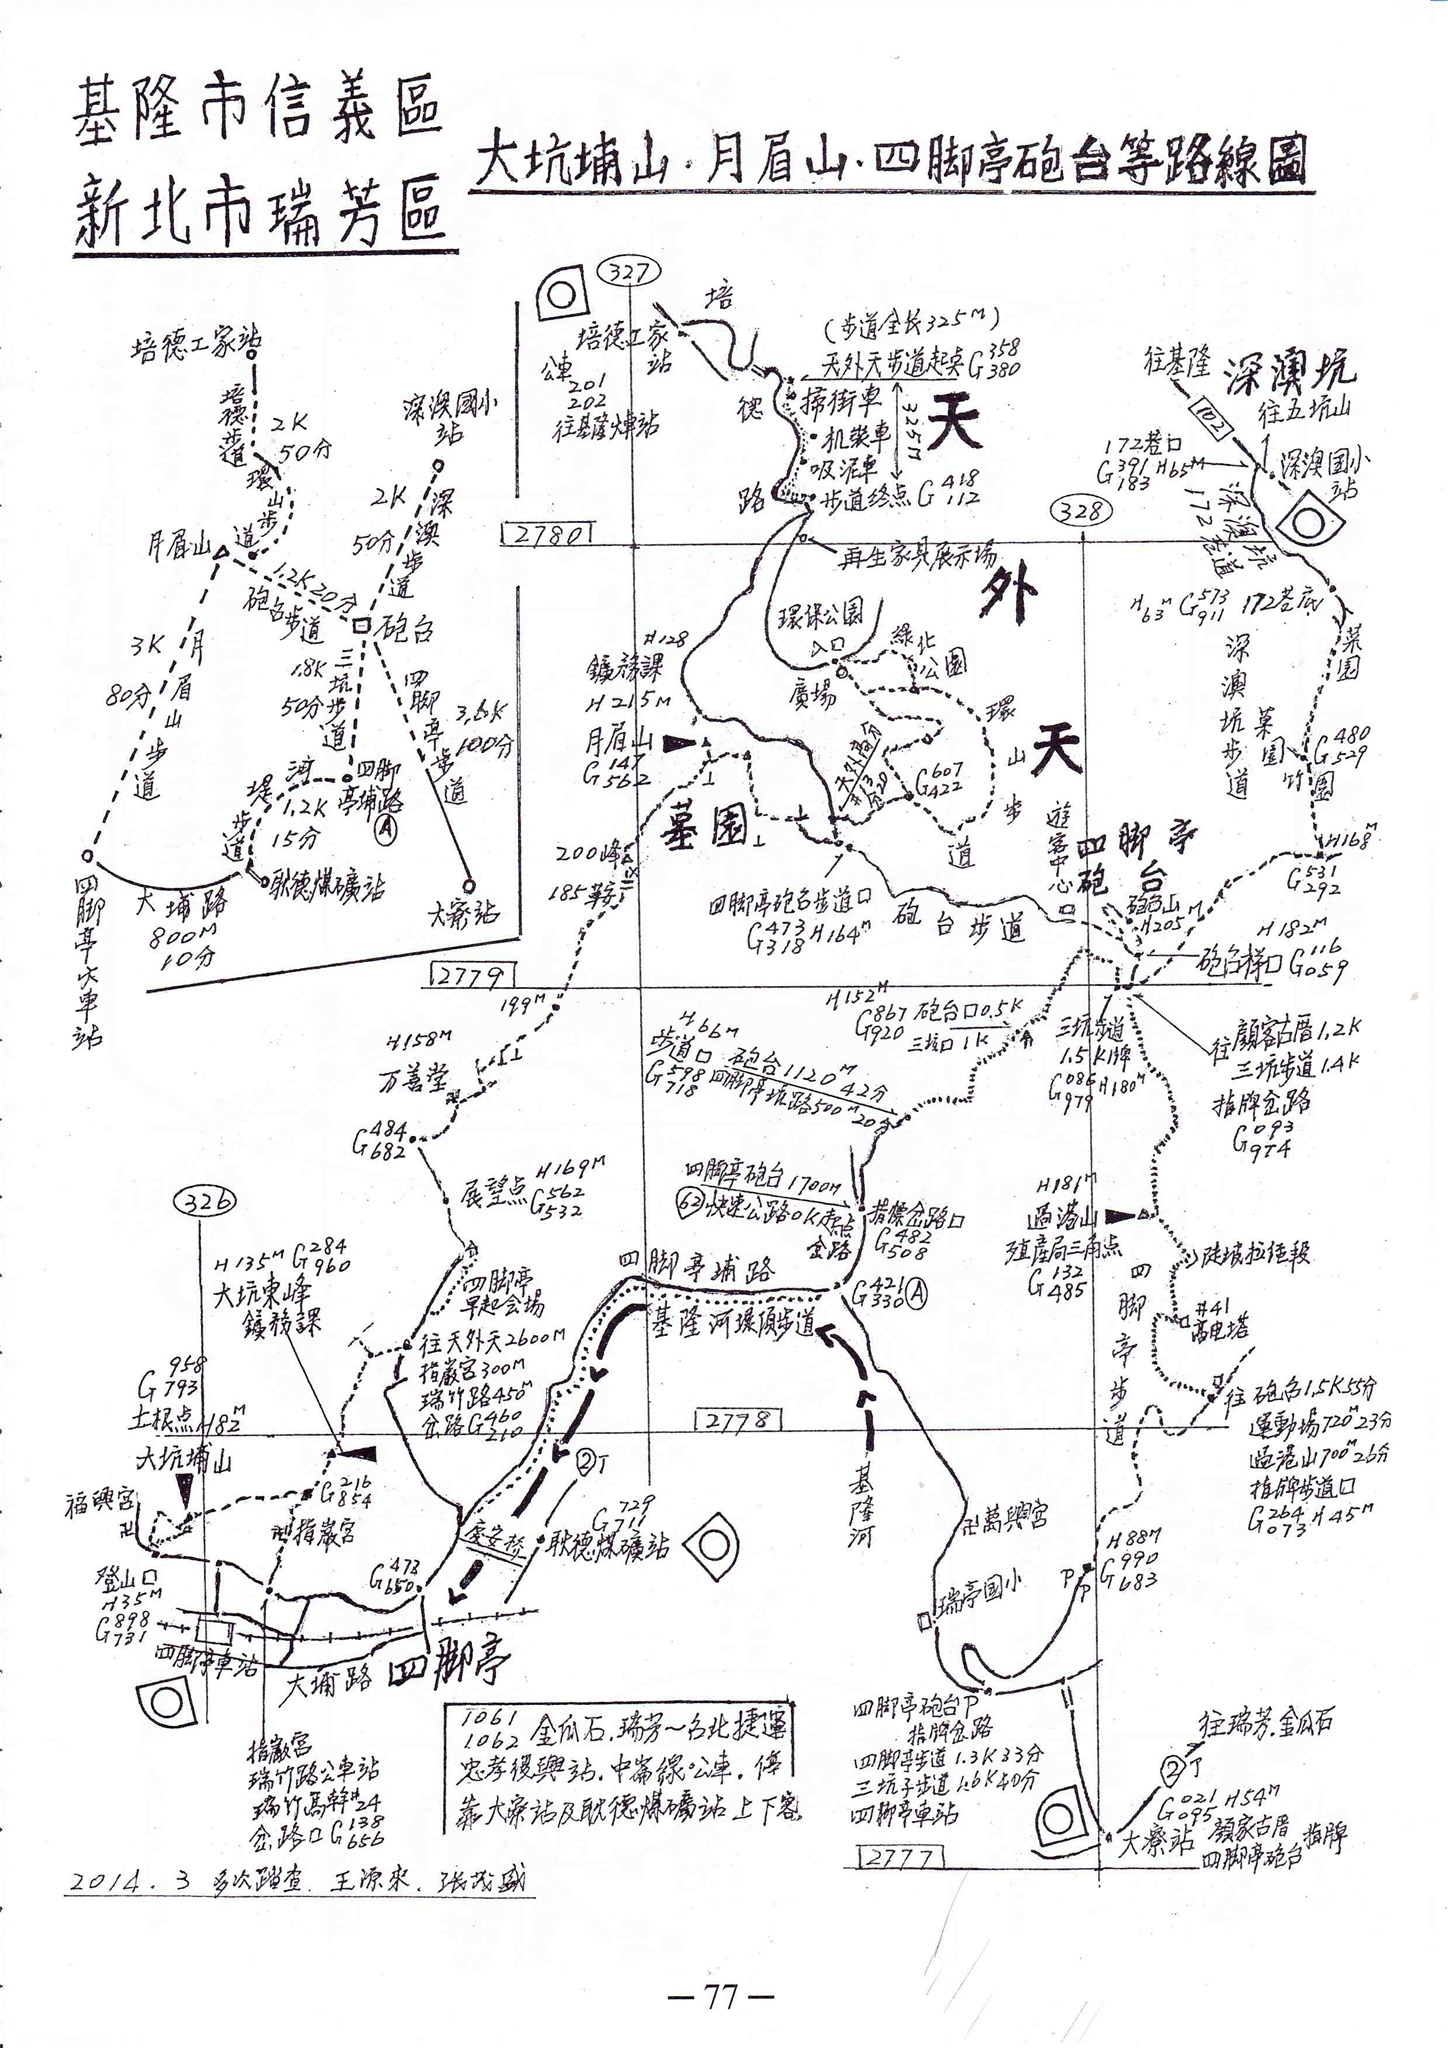 基隆市信義區
新北市瑞芳區
大坑埔山.月眉山.四脚亭砲台等路線圖
培德工家站
培德步道
2K
50分
環山步道
深澳國小站
2K
50分
深澳步道
月眉山
1.2K 20分
砲台步道
砲台
3K
80分
月眉山步道
1.8K
50分
三坑步道
四脚亭步道
3.6K
100分
河堤步道
1.2K
15分
四脚亭埔路
A
耿德煤礦站
大寮站
大埔路
800M
10分
四脚亭火車站
327
培德路
培德工家站
公車
201
202
往基隆火車站
(步道全长325M)
天外天步道起点 G 358 380
掃街車
机裝車
吸泥車
325M
步道终点 G 418 112
天外天
2780
再生家具展示場
往基隆
深澳坑
102
往五坑山
172巷口
G 391 183 H65M
深澳国小站
深澳坑172巷道
328
H63M G 573 911 172巷底
菜園
深澳坑步道
菜園
竹園
G 480 529
環保公園
綠化公園
廣場
H128
鑛務課
H215M
月眉山
G 147 562
環山步道
G 607 422
墓園
遊客中心
四脚亭砲台
砲台山
H205M
H168M
G 531 292
200峰
185鞍
四脚亭砲台步道口
G 473 318 H164M
砲台步道
H182M
砲台梯口 G 116 059
2779
199M
H158M
万善堂
G 484 682
H66M
步道口
G 598 718
砲台1120M 42分
四脚亭坑路500M 20分
H152M
G 867 920
砲台口0.5K
三坑口1K
三坑步道
1.5K牌
G 086 979 H180M
往顏客古厝1.2K
三坑步道1.4K
指牌岔路
G 093 974
展望点
H169M
G 562 532
326
四脚亭砲台1700M
62快速公路0K起点
岔路
指標岔路口
G 482 508
H181M
過港山
殖產局三角点
G 132 485
陡坡拉绳段
四脚亭步道
#41
高电塔
四脚亭埔路
G 421 330 A
基隆河堤頂步道
H135M G 284 960
大坑東峰
鑛務課
四脚亭
早起会場
往天外天2600M
指巖宮300M
瑞竹路450M
岔路G 460 210
G 958 793
土根点H82M
大坑埔山
2778
往砲台1.5K55分
運動場720M23分
過港山700M26分
指牌步道口
G 264 073 H45M
福興宮
G 216 854
卍指巖宮
2丁
G 729 711
耿德煤礦站
慶安橋
基隆河
卍萬興宮
H88M
G 990 683
P
P
登山口
H35M
G 898 731
G 473 650
四脚亭車站
大埔路
四脚亭
瑞亭國小
指巖宮
瑞竹路公車站
瑞竹高幹#24
岔路口G 138 656
1061
1062 金瓜石.瑞芳~台北捷運
忠孝復興站.中崙線公車.停
靠大寮站及耿德煤礦站上下客.
四脚亭砲台P
指牌岔路
四脚亭步道1.3K33分
三坑子步道1.6K40分
四脚亭車站
往瑞芳.金瓜石
2丁
G 021 095 H54M
大寮站
顏家古厝
四脚亭砲台
指牌
2777
2014.3 多次踏查. 王源来. 張茂盛
— 77 —